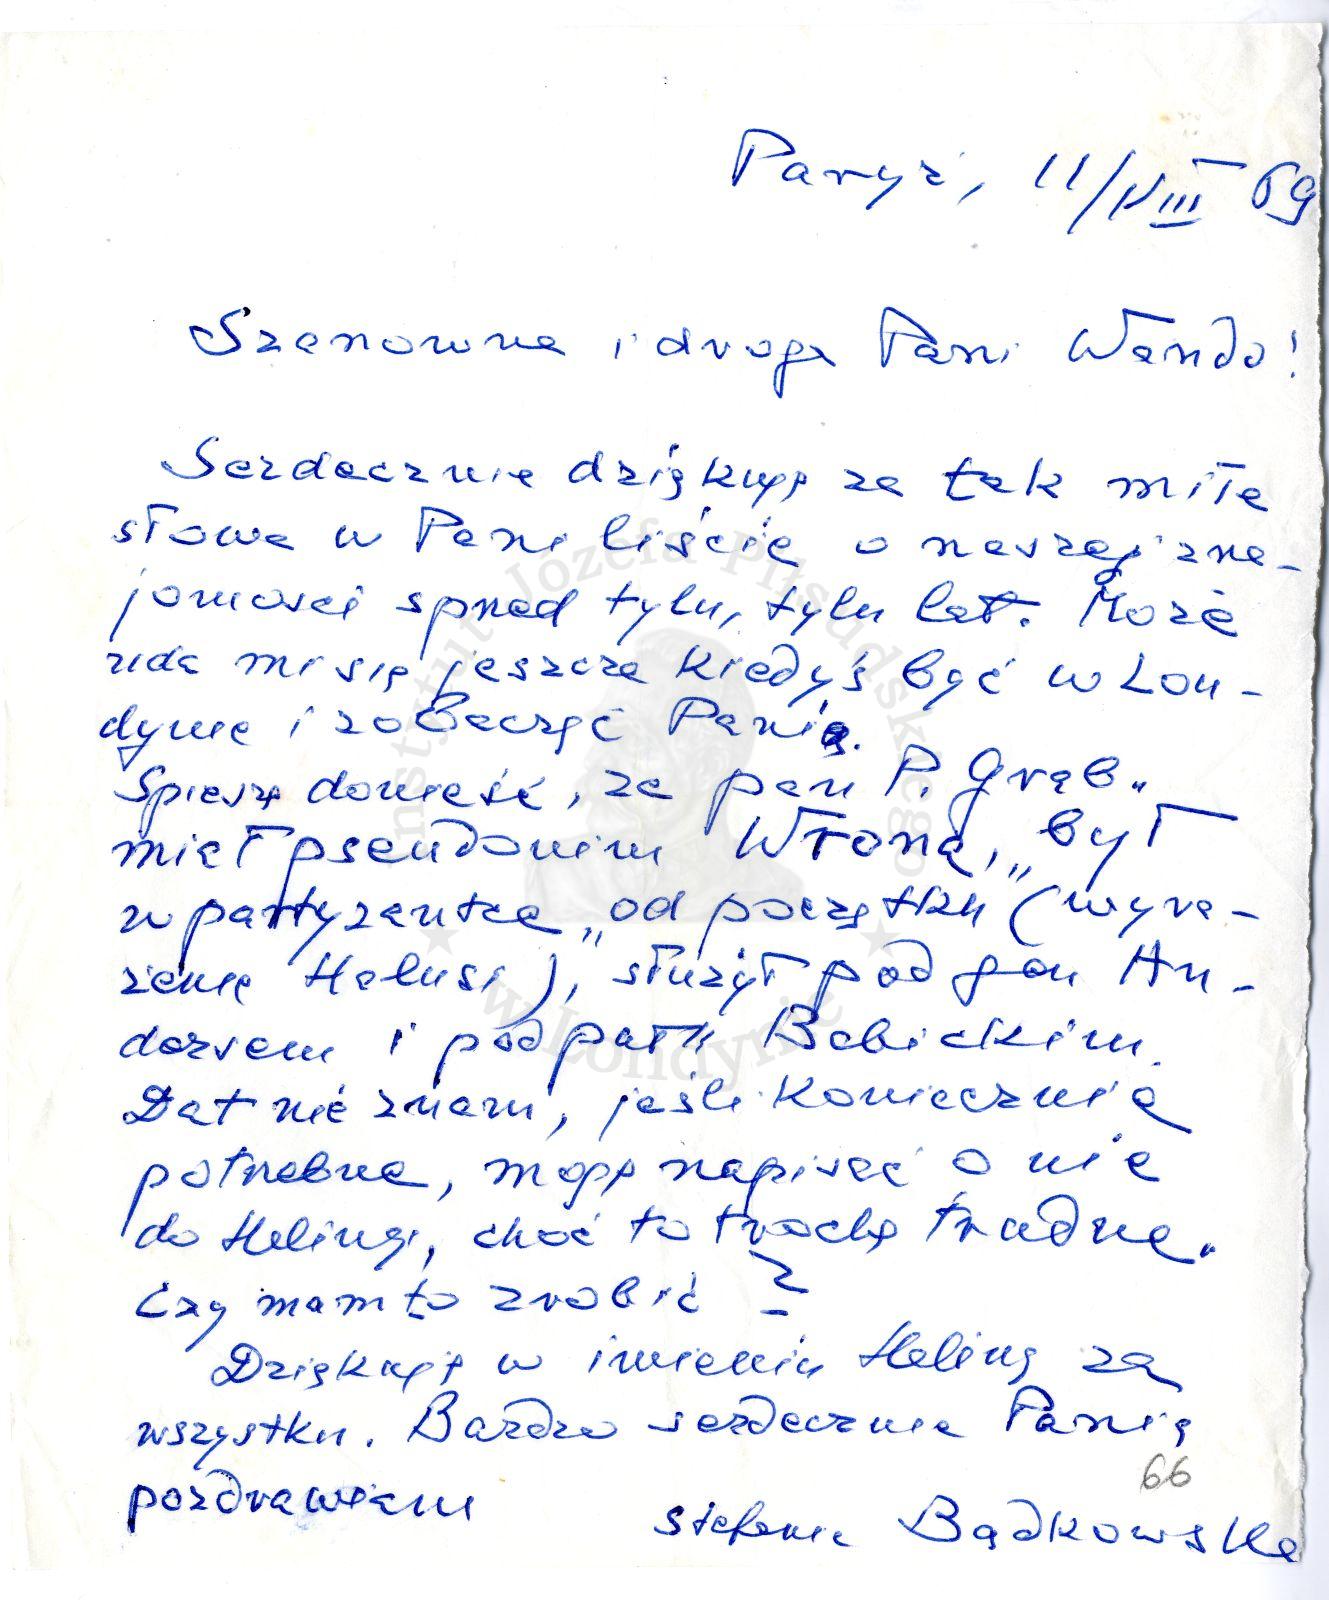 Paryż, 11/VIII 69
Szanowna i droga Pani Wando!
Serdecznie dziękuję za tak miłe
słowa w Pani liście o naszej zna-
jomości sprzed tylu, tylu lat. Może
uda mi się jeszcze kiedyś być w Lon-
dynie i zobaczyć Panią.
Spieszę donieść, że pan P. Grąb.
miał pseudonim Wrona, „był
w partyzantce „od początku (wyra-
żenie Halusi), służył pod gen An-
dersem i pod płk Bobickim.
Dat nie znam, jeśli koniecznie
potrzebne, mogę napisać o nie
do Haliny, choć to trochę trudne.
Czy mam to zrobić?
Dziękuję w imieniu Haliny za
wszystko. Bardzo serdecznie Panią
pozdrawiam
66
Stefania Bądkowska
Instytut Józefa Piłsudskiego
w Londynie